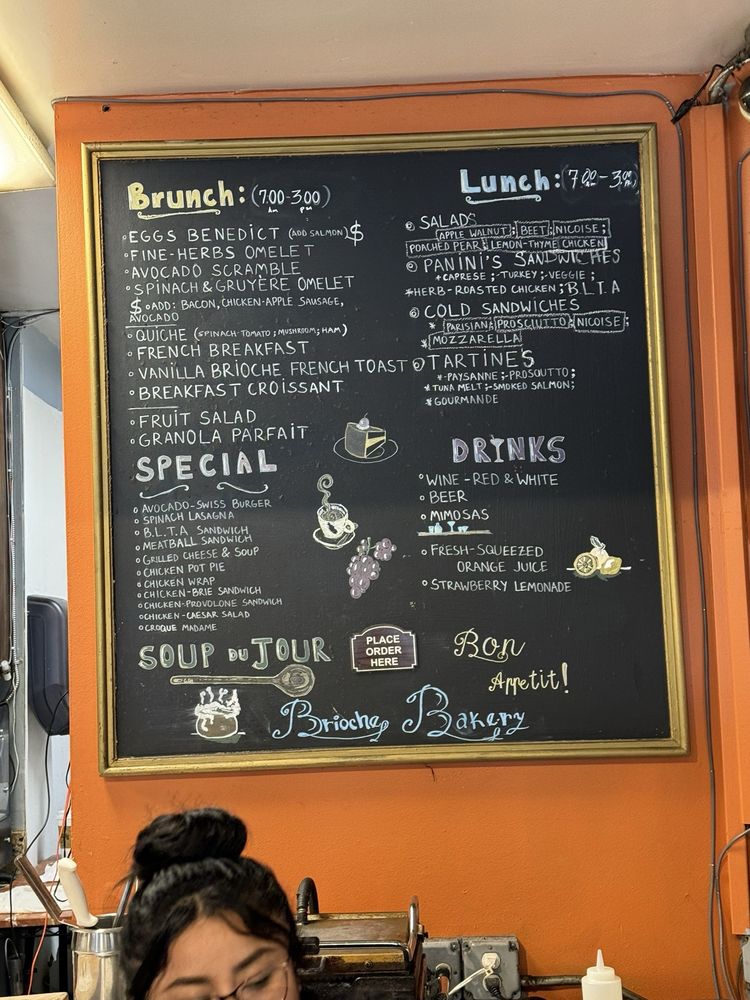 Brunch: (7:00-3:00)
am pm
EGGS BENEDICT (ADD SALMON) $
FINE-HERBS OMELET
AVOCADO SCRAMBLE
SPINACH & GRUYÈRE OMELET
$ ADD: BACON, CHICKEN-APPLE SAUSAGE,
AVOCADO
QUICHE (SPINACH-TOMATO; MUSHROOM; HAM)
FRENCH BREAKFAST
VANILLA BRIOCHE FRENCH TOAST
BREAKFAST CROISSANT
FRUIT SALAD
GRANOLA PARFAIT
SPECIAL
AVOCADO-SWISS BURGER
SPINACH LASAGNA
B.L.T.A SANDWICH
MEATBALL SANDWICH
GRILLED CHEESE & SOUP
CHICKEN POT PIE
CHICKEN WRAP
CHICKEN-BRIE SANDWICH
CHICKEN-PROVOLONE SANDWICH
CHICKEN-CAESAR SALAD
CROQUE MADAME
SOUP DU JOUR
Lunch: (7:00-3:00)
am pm
SALADS
APPLE WALNUT; BEET; NICOISE;
POACHED PEAR; LEMON-THYME CHICKEN
PANINI'S SANDWICHES
*CAPRESE; -TURKEY; -VEGGIE;
*HERB-ROASTED CHICKEN; B.L.T.A
COLD SANDWICHES
* PARISIAN; PROSCIUTTO; NICOISE;
* MOZZARELLA
TARTINE'S
*-PAYSANNE; -PROSCUTTO;
*TUNA MELT; -SMOKED SALMON;
*GOURMANDE
DRINKS
WINE - RED & WHITE
BEER
MIMOSAS
FRESH-SQUEEZED
ORANGE JUICE
STRAWBERRY LEMONADE
PLACE
ORDER
HERE
Bon
Appetit!
Brioche Bakery